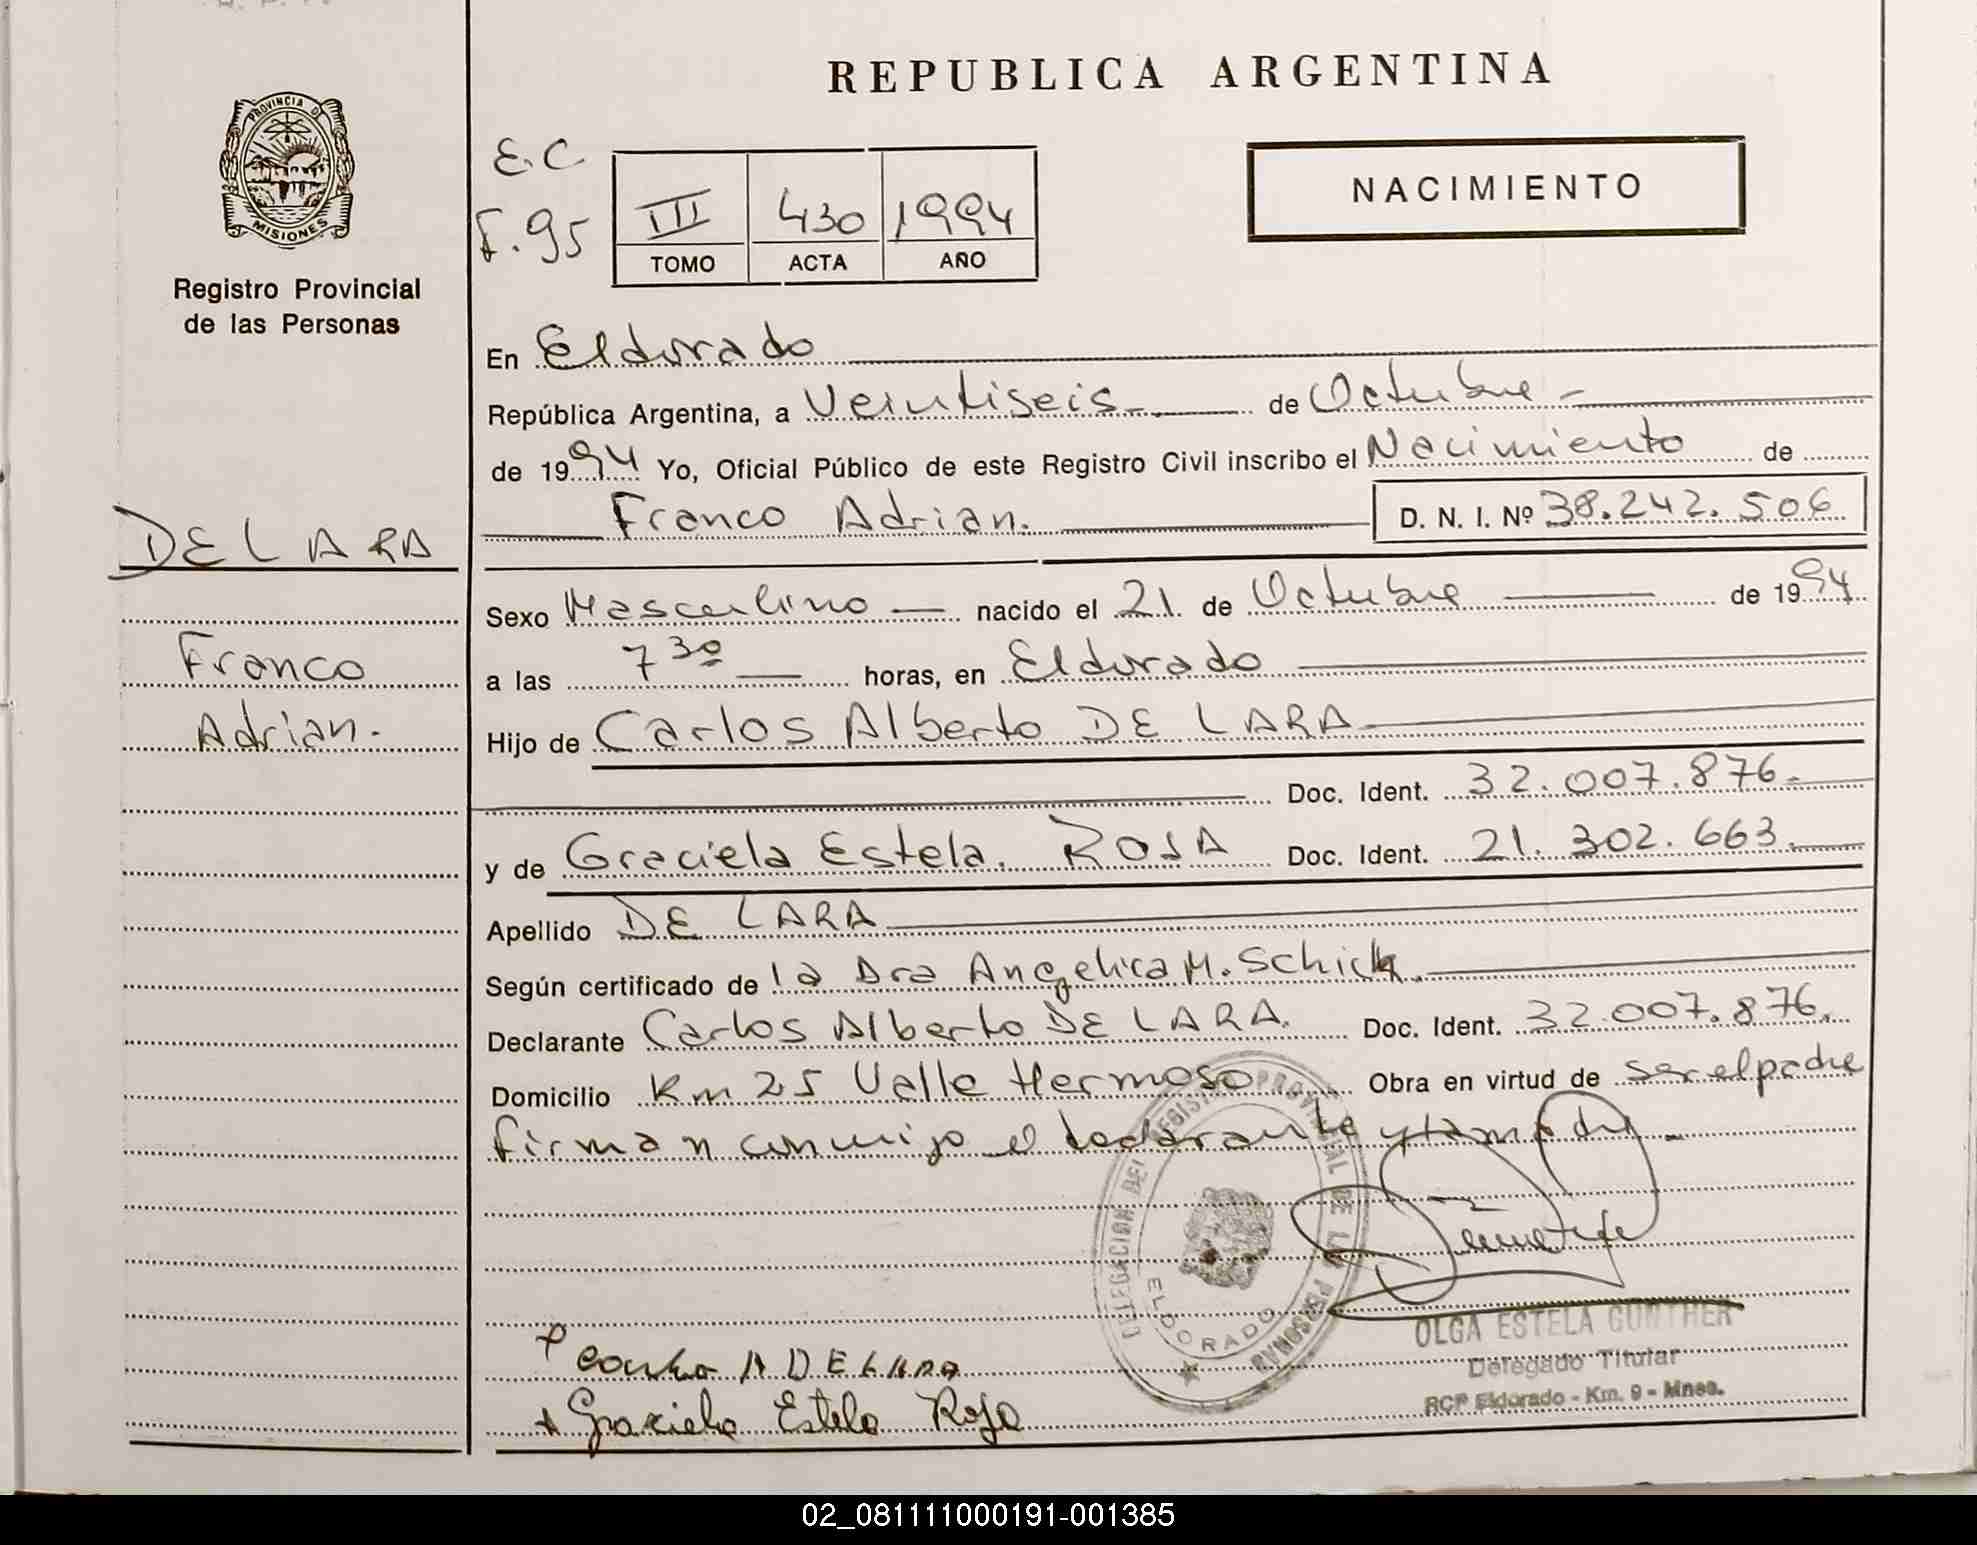 REPUBLICA ARGENTINA
PROVINCIA D
MISIONES
Registro Provincial
de las Personas
E.C
F.95
III 430 1994
TOMO ACTA AÑO
NACIMIENTO
En Eldorado
República Argentina, a Veintiseis de Octubre
de 1994 Yo, Oficial Público de este Registro Civil inscribo el Nacimiento de
Franco Adrian. D. N. I. Nº 38.242.506
DE LARA
Franco
Adrian.
Sexo Masculino nacido el 21 de Octubre de 1994
a las 7 30 horas, en Eldorado
Hijo de Carlos Alberto DE LARA
Doc. Ident. 32.007.876.
y de Graciela Estela. ROSA Doc. Ident. 21.302.663.
Apellido DE LARA
Según certificado de la Dra Angelica M. Schick.
Declarante Carlos Alberto DE LARA. Doc. Ident. 32.007.876.
Domicilio Km 25 Valle Hermoso Obra en virtud de ser el padre
firman conmigo el declarante y
DELEGACION DEL REGISTRO PROVINCIAL DE LAS PERSONAS
ELDORADO
OLGA ESTELA GUNTHER
Delegado Titular
RCP Eldorado - Km. 9 - Mnes.
A DE LARA
Graciela Estela Rosa
02_081111000191-001385